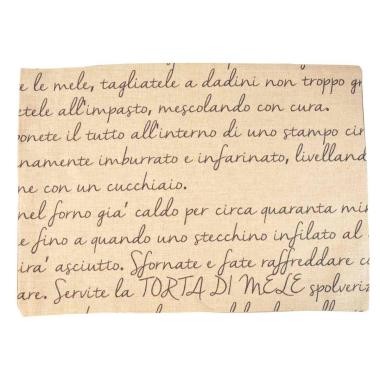 e le mele, tagliatele a dadini non troppo gr
etele all'impasto, mescolando con cura.
onete il tutto all'interno di uno stampo cir
namente imburrato e infarinato, livelland
ne con un cucchiaio.
nel forno gia' caldo per circa quaranta min
e fino a quando uno stecchino infilato al
ira' asciutto. Sfornate e fate raffreddare co
are. Servite la TORTA DI MELE spolveriz